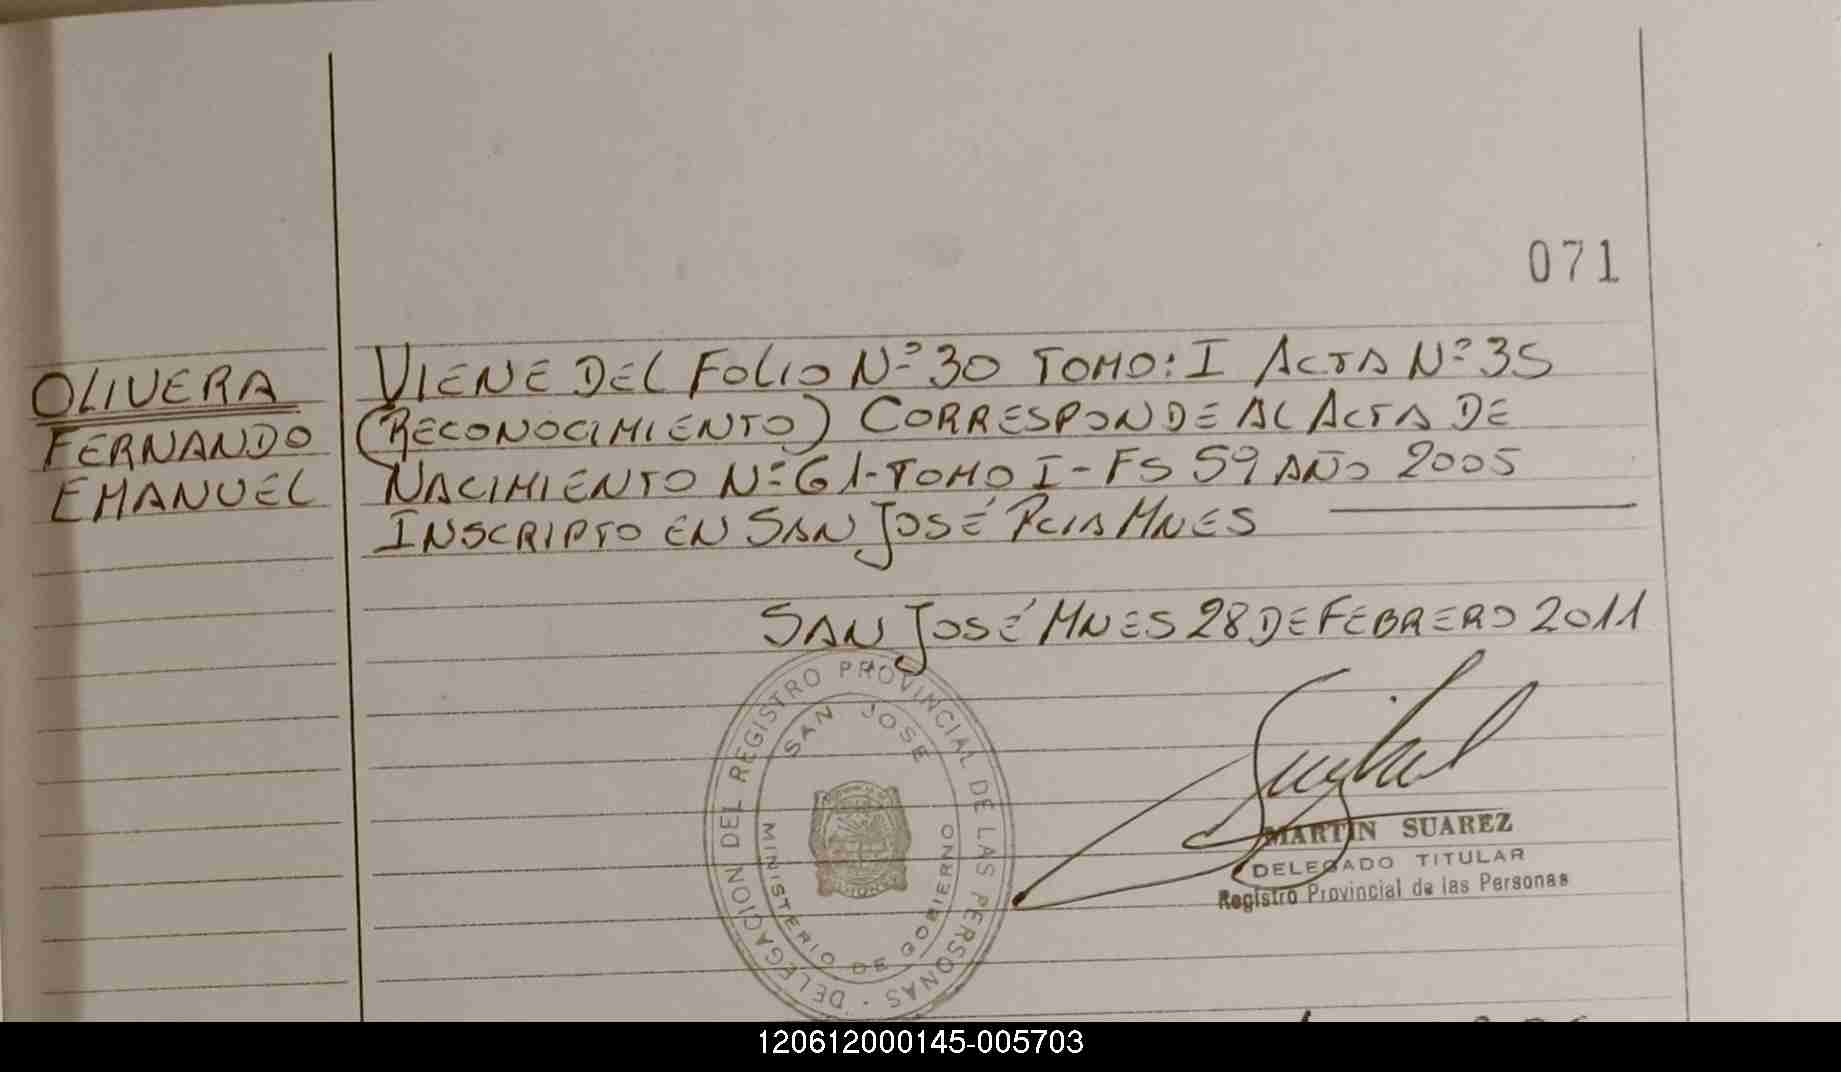 071
OLIVERA
FERNANDO
EMANUEL
VIENE DEL FOLIO Nº 30 TOMO: I ACTA Nº 35
(RECONOCIMIENTO) CORRESPONDE AL ACTA DE
NACIMIENTO Nº 61-TOMO I-FS 59 AÑO 2005
INSCRIPTO EN SAN JOSÉ PCIA MNES
SAN JOSÉ MNES 28 DE FEBRERO 2011
DELEGACION DEL REGISTRO PROVINCIAL DE LAS PERSONAS
SAN JOSE
MINISTERIO DE GOBIERNO
MARTIN SUAREZ
DELEGADO TITULAR
Registro Provincial de las Personas
120612000145-005703